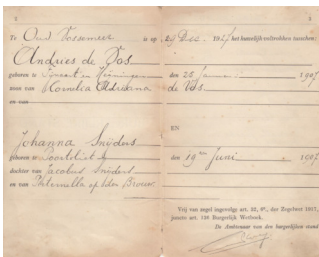 2
3
Te Oud Vossemeer is op Dec. 1927 het huwelijk voltrokken tusschen:
Andries de Vos
geboren te en den 25 Januari 1907
zoon van Kornelia Adriana de Vos
en van
EN
Johanna Snijders
geboren te Poortvliet den 19en Juni 1907
dochter van Jacobus Snijders
en van Brouw
Vrij van zegel ingevolge art. 32, 6°, der Zegelwet 1917,
juncto art. 136 Burgerlijk Wetboek.
De Ambtenaar van den burgerlijken stand